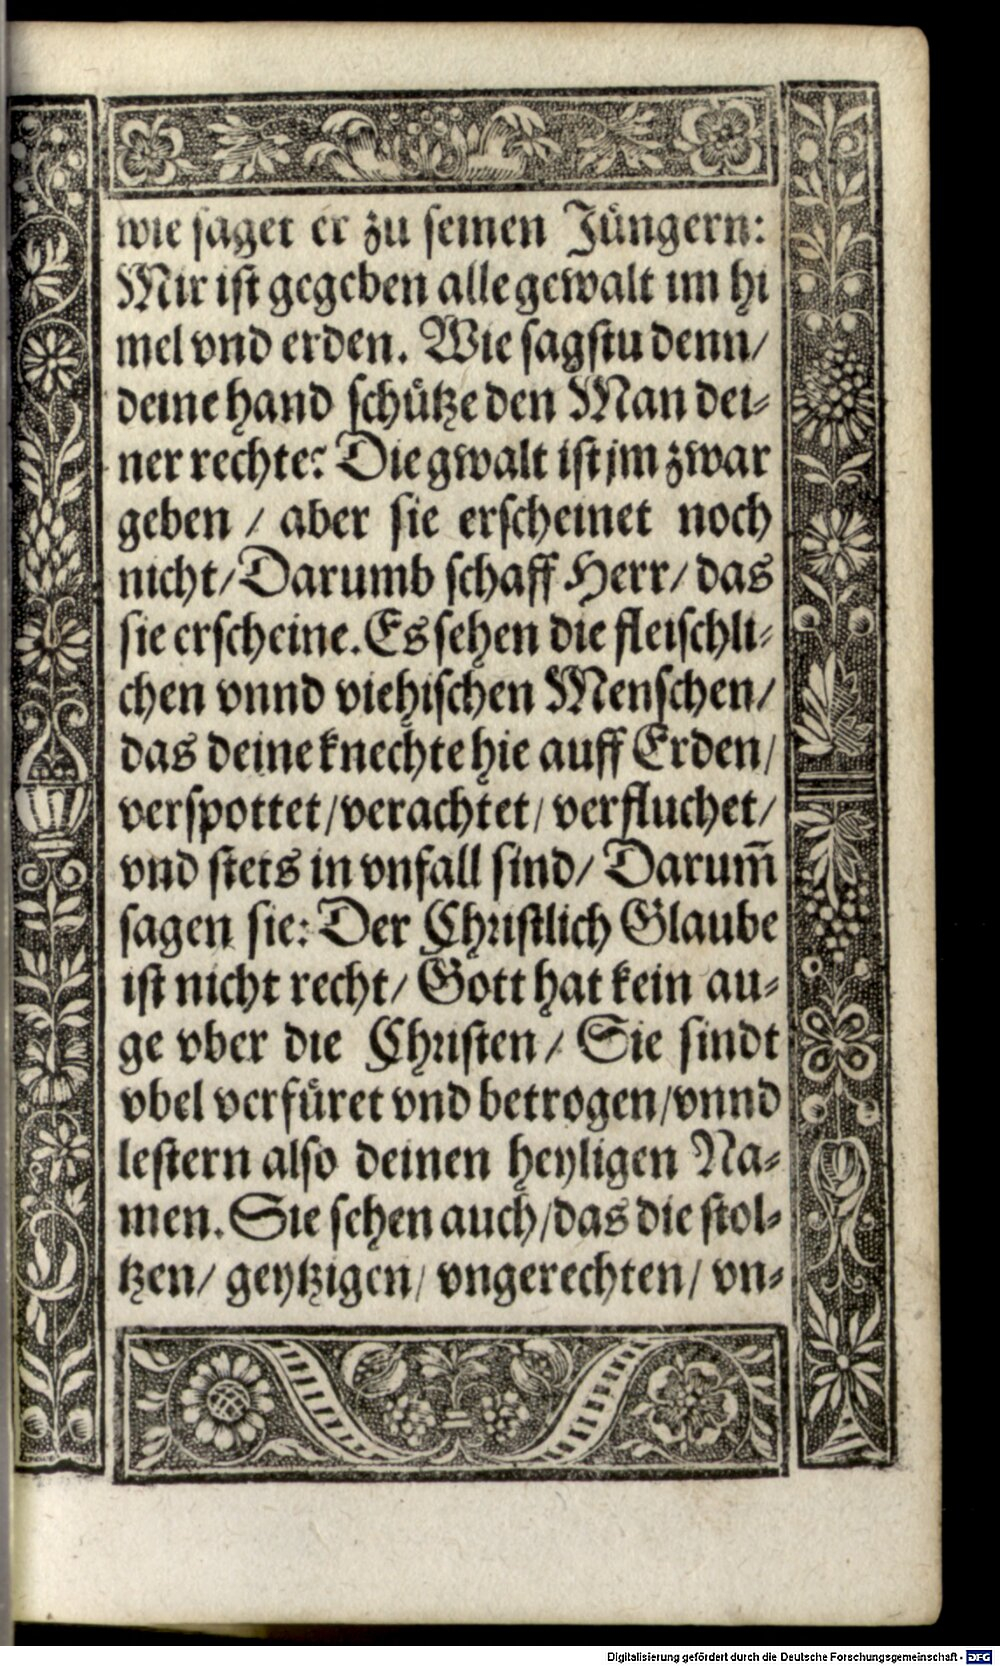 wie saget er zu seinen Jüngern:
Mir ist gegeben alle gewalt im hi
mel vnd erden. Wie sagstu denn/
deine hand schütze den Man dei-
ner rechte? Die gwalt ist jm zwar
geben / aber sie erscheinet noch
nicht/ Darumb schaff Herr/ das
sie erscheine. Es sehen die fleischli-
chen vnnd viehischen Menschen/
das deine knechte hie auff Erden/
verspottet/ verachtet/ verfluchet/
vnd stets in vnfall sind/ Darum̃
sagen sie: Der Christlich Glaube
ist nicht recht/ Gott hat kein au-
ge vber die Christen/ Sie sindt
vbel verfüret vnd betrogen/ vnnd
lestern also deinen heyligen Na-
men. Sie sehen auch/ das die stol-
tzen/ geytzigen/ vngerechten/ vn-
Digitalisierung gefördert durch die Deutsche Forschungsgemeinschaft - DFG